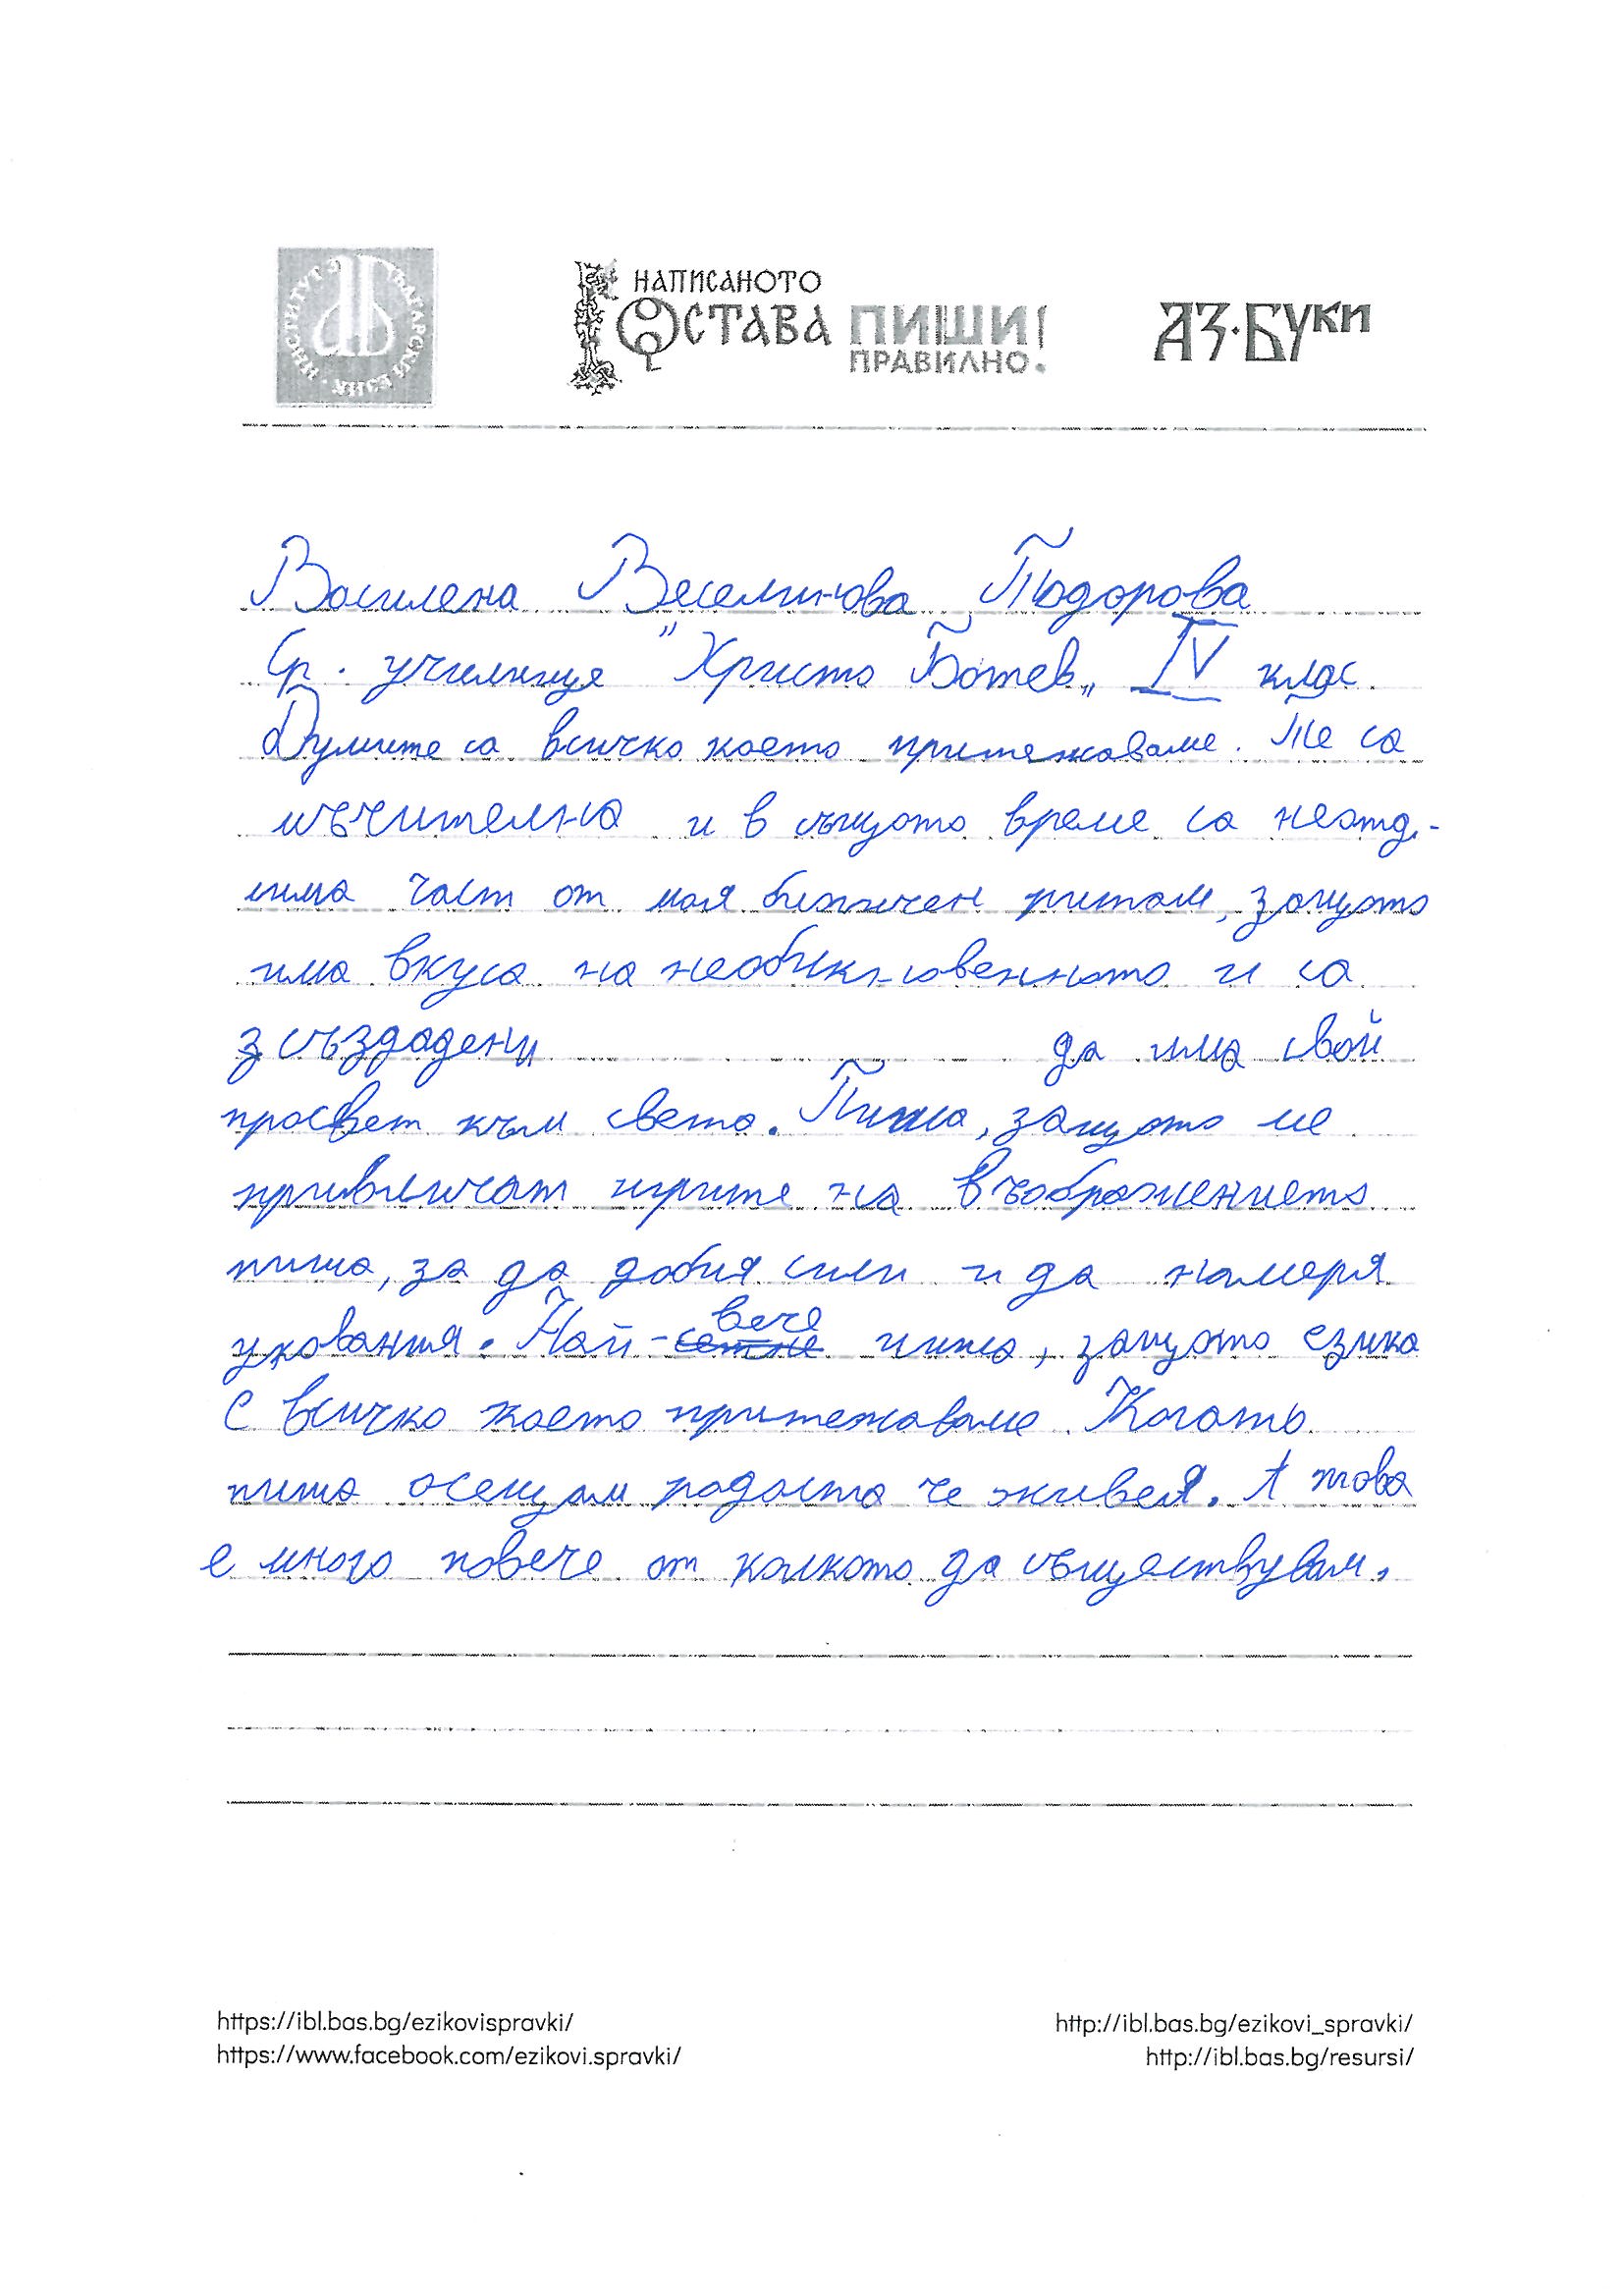 ИНСТИТУТ ЗА БЪЛГАРСКИ ЕЗИК
НАПИСАНОТО
ОСТАВА ПИШИ!
ПРАВИЛНО.
АЗ·БУКИ
Василена Веселинова Тодорова
Ср. училище "Христо Ботев„ IV клас.
Думите са всичко което притежаваме. Те са
мъчителна и в същото време са неотд.-
лима част от моя битичен ритам, защото
има вкуса на необикновенното и са
з създадени да има свой
просвет към света. Пиша, защото ме
привличат игрите на въображението
пиша, за да добия сили и да намеря
упования. Най-вече пиша, защото езика
е всичко което притежаваме. Когато
пиша осещам радоста че живея. А това
е много повече от колкото да съществувам.
https://ibl.bas.bg/ezikovispravki/ http://ibl.bas.bg/ezikovi_spravki/
https://www.facebook.com/ezikovi.spravki/ http://ibl.bas.bg/resursi/